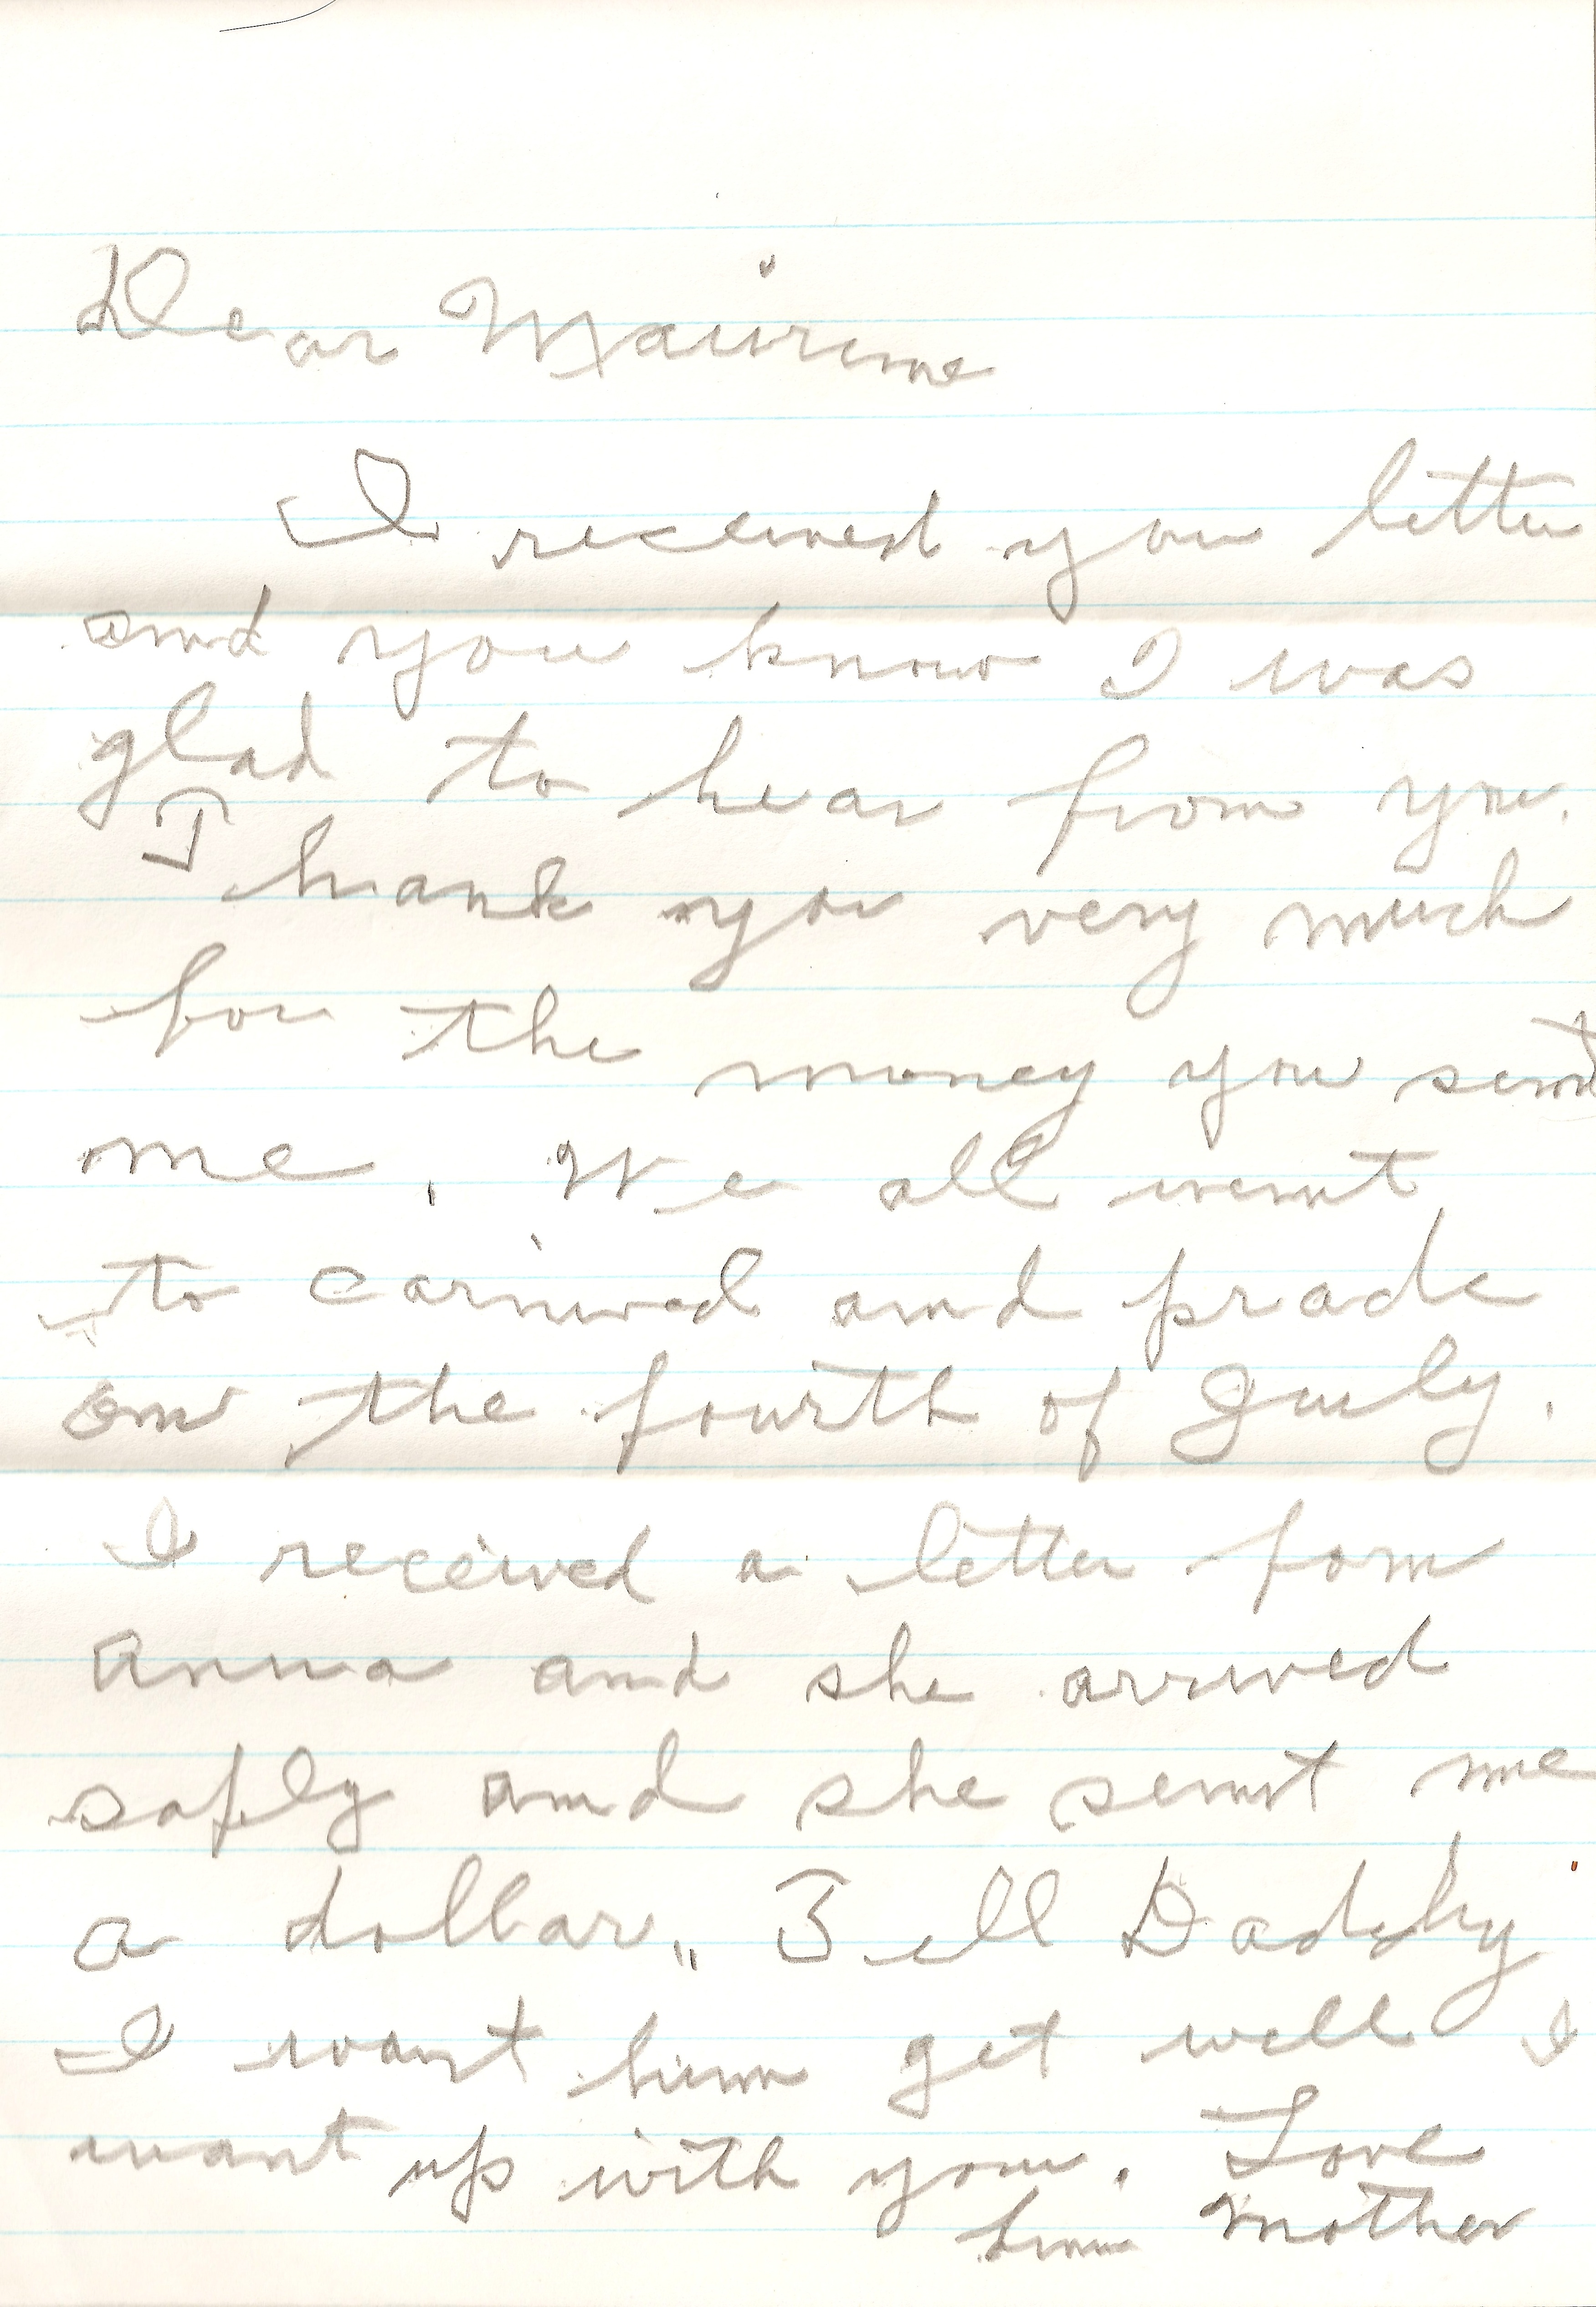 Dear Maurine
I received you letter
and you know I was
glad to hear from you.
Thank you very much
for the money you sent
me. We all went
to carnival and prade
on the fourth of July.
I received a letter fom
Anna and she arrived
safly and she sent me
a dollar,, Tell Daddy
I want him get well I
want up with you. Love
Mother